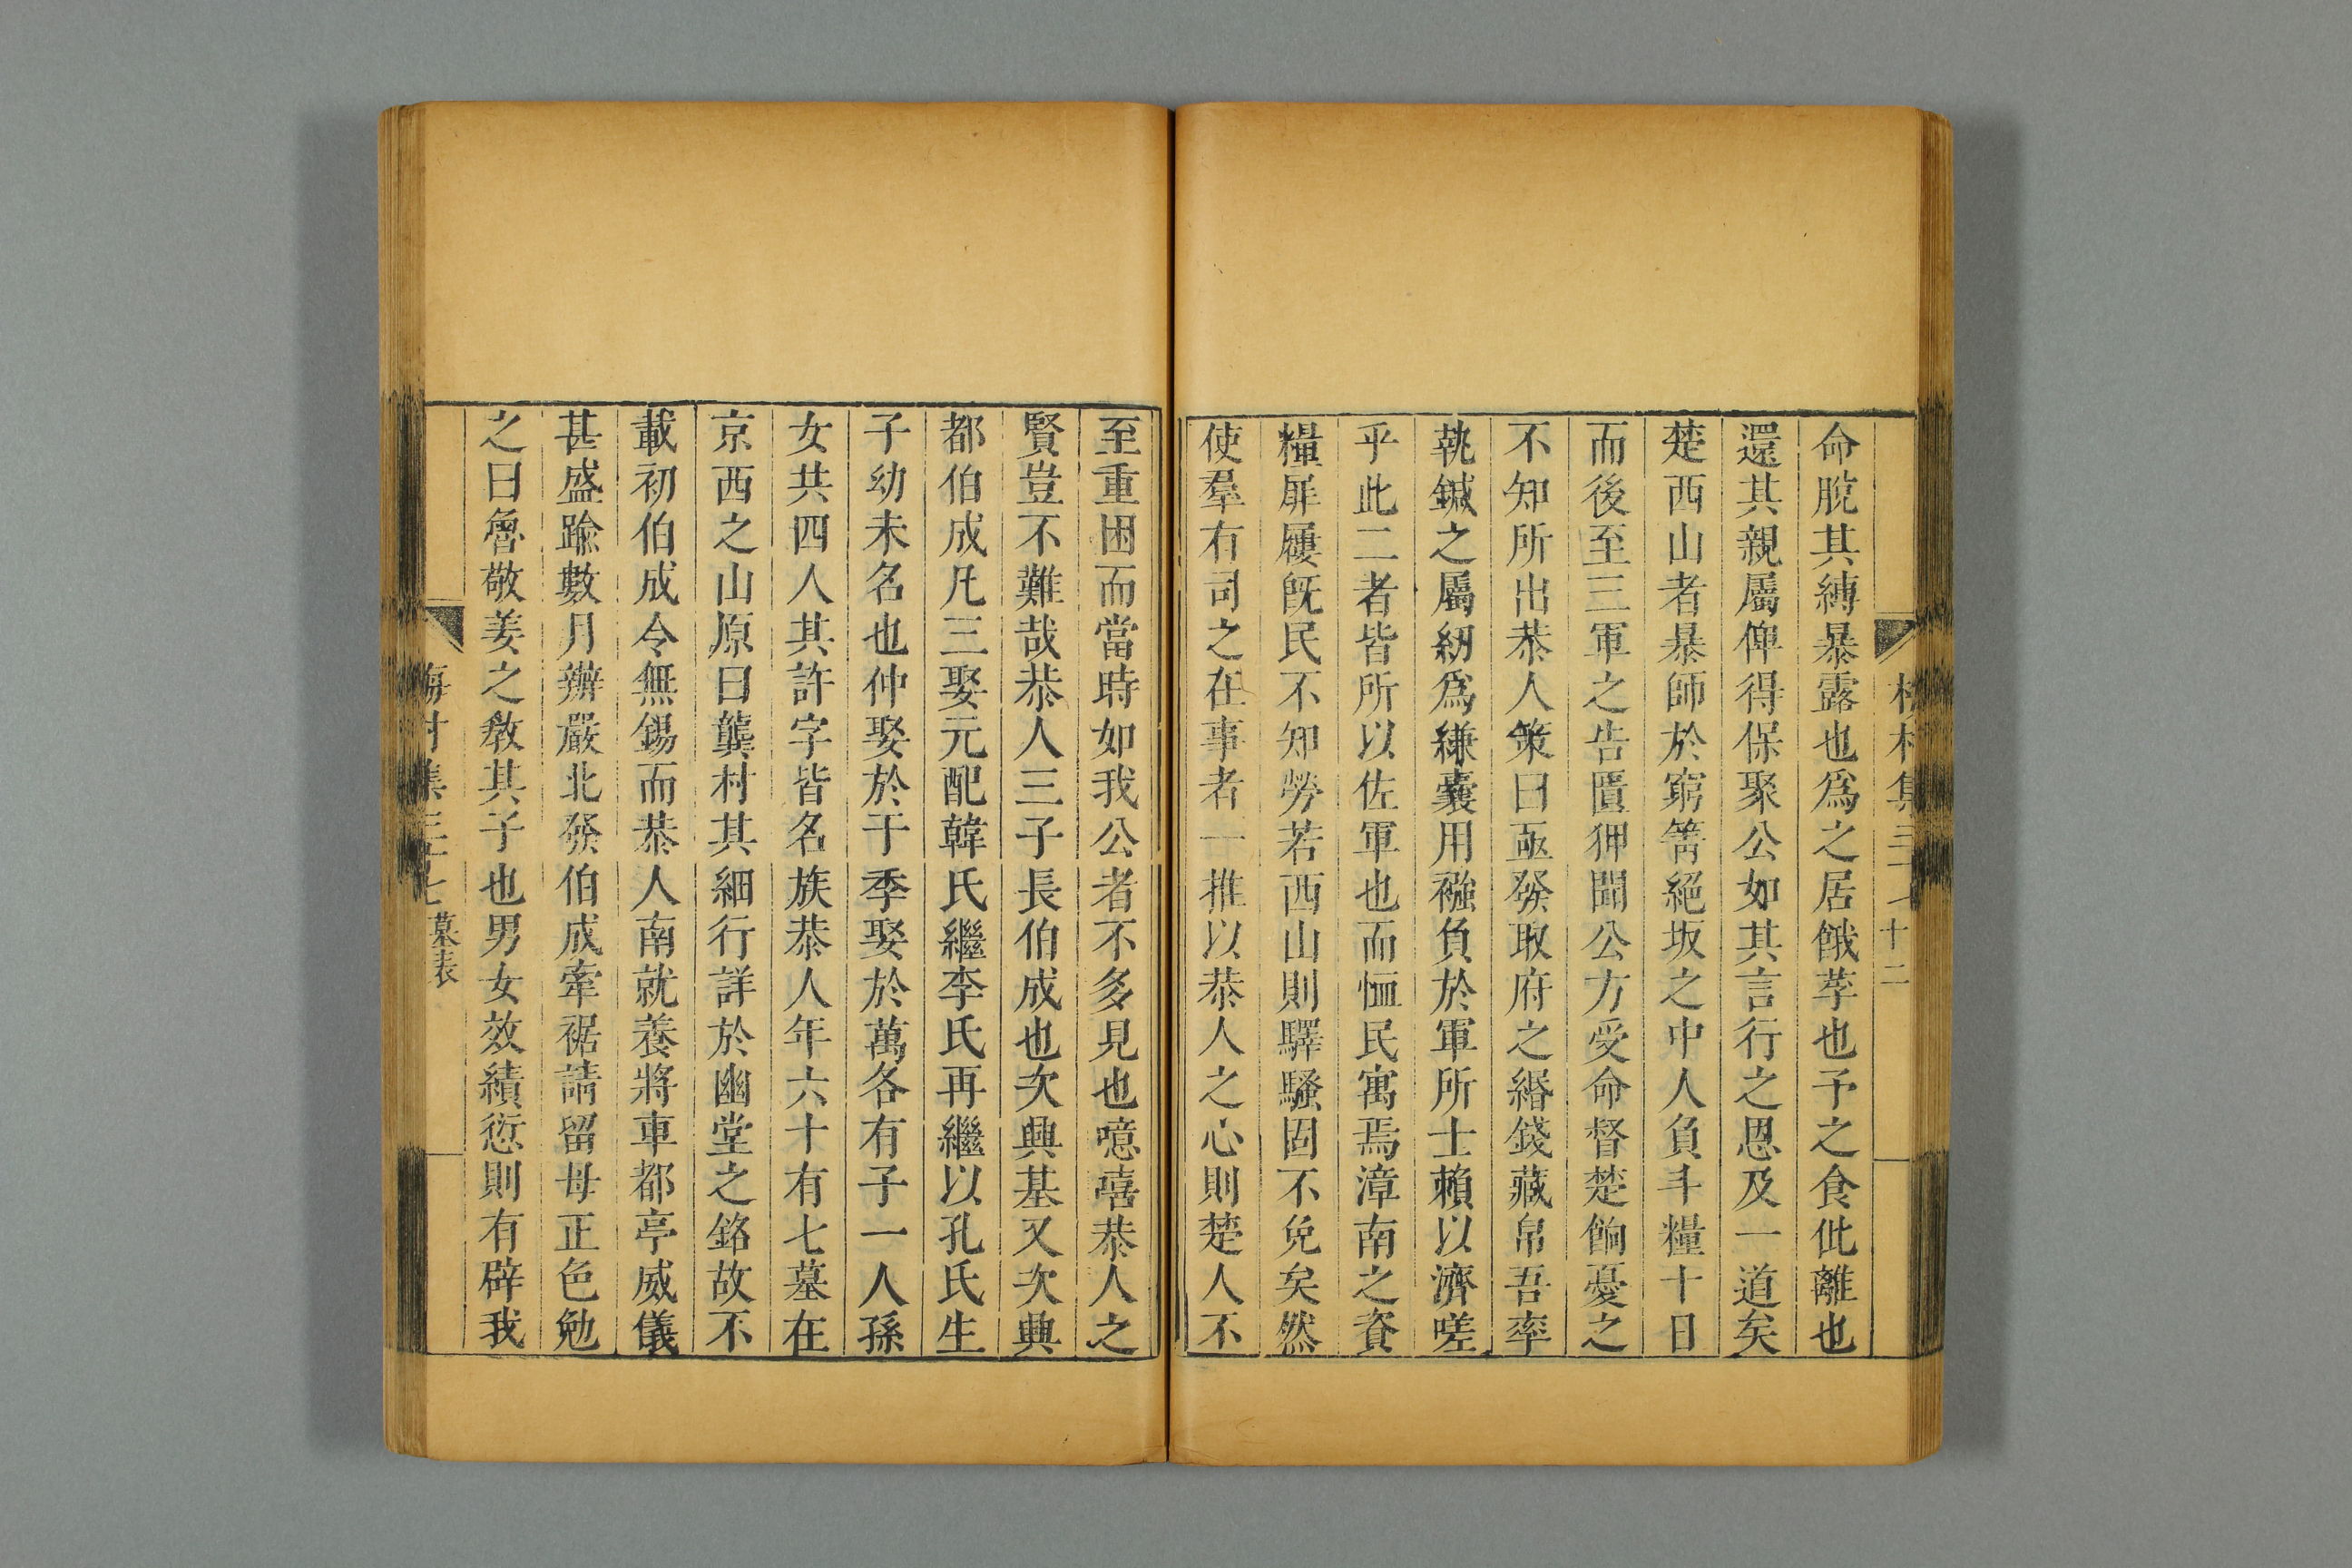 命脫其縛暴露也爲之居餓莩也予之食仳離也
還其親屬俾得保聚公如其言行之恩及一道矣
楚西山者暴師於窮箐絕坂之中人負斗糧十日
而後至三軍之告匱狎聞公方受命督楚餉憂之
不知所出恭人策曰亟發取府之緡錢藏帛吾率
執鍼之屬紉爲縑囊用襁負於軍所士賴以濟嗟
乎此二者皆所以佐軍也而恤民寓焉漳南之資
糧屝屨旣民不知勞若西山則驛騷固不免矣然
使羣有司之在事者一推以恭人之心則楚人不
十二
至重困而當時如我公者不多見也噫嘻恭人之
賢豈不難哉恭人三子長伯成也次興基又次興
都伯成凡三娶元配韓氏繼李氏再繼以孔氏生
子幼未名也仲娶於于季娶於萬各有子一人孫
女共四人其許字皆名族恭人年六十有七墓在
京西之山原曰龔村其細行詳於幽堂之銘故不
載初伯成令無錫而恭人南就養將車都亭威儀
甚盛踰數月辦嚴北發伯成牽裾請留母正色勉
之曰魯敬姜之敎其子也男女效績愆則有辟我
梅村集三十七 墓表